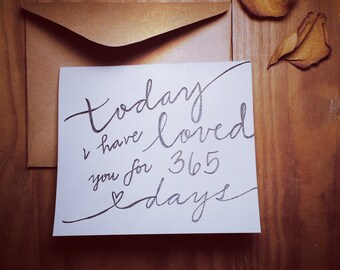 today
i have loved
you for 365
days